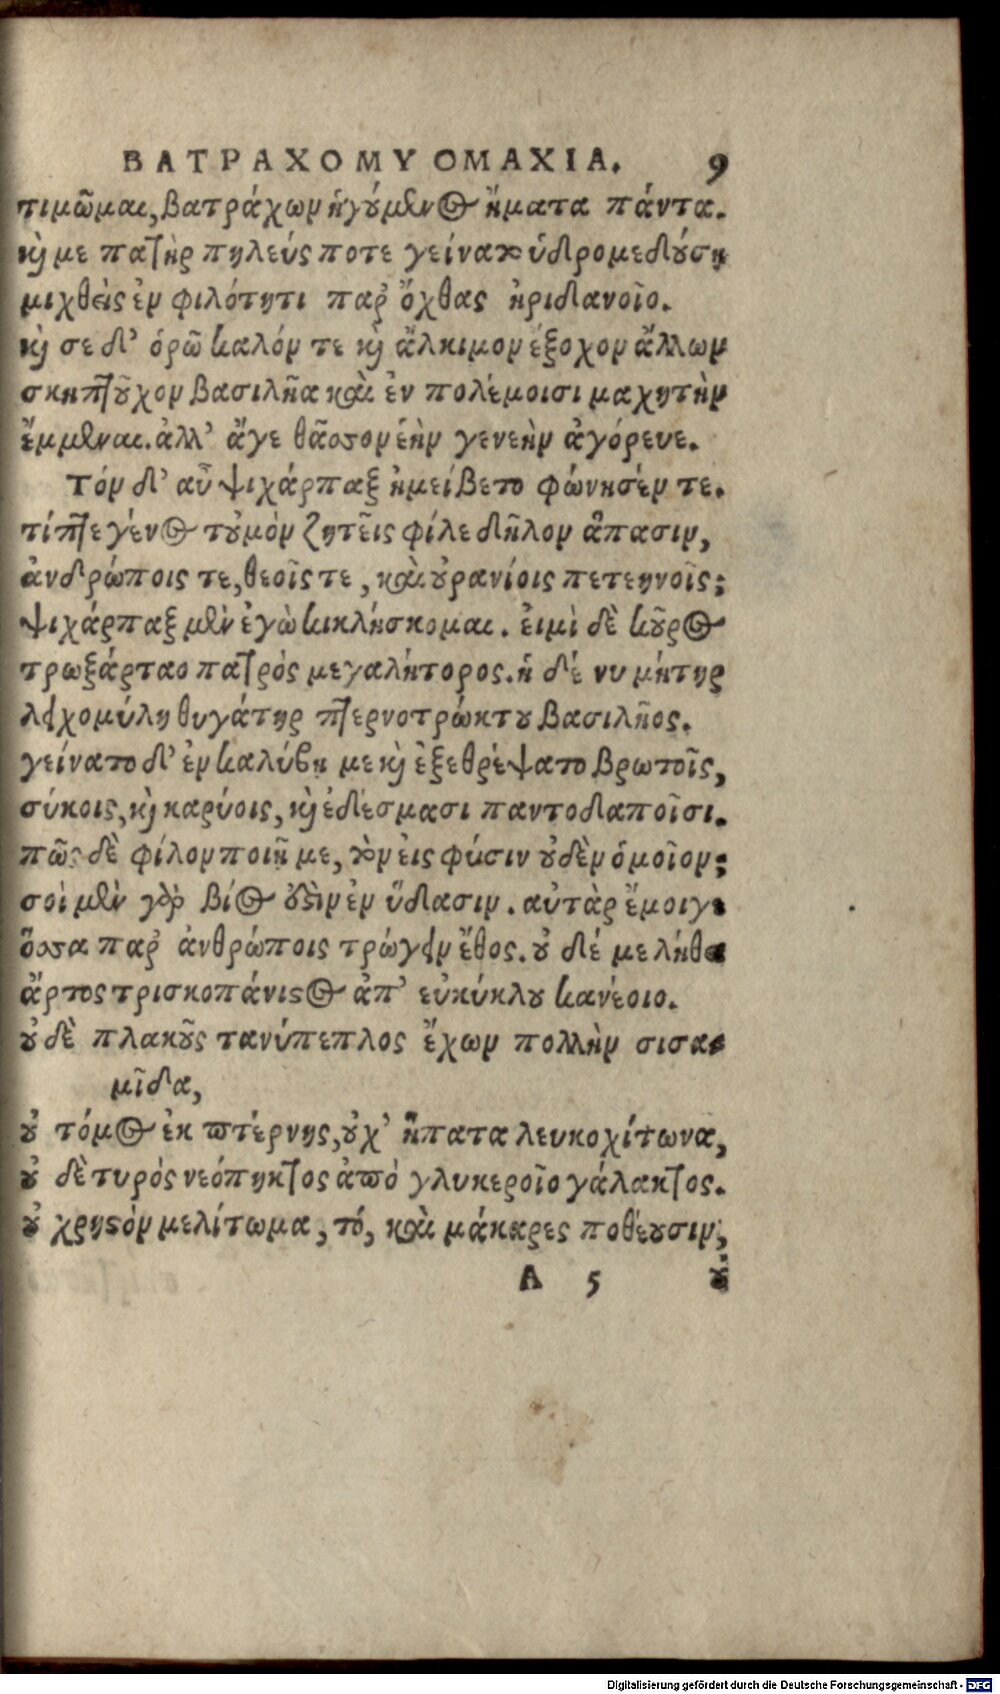 ΒΑΤΡΑΧΟΜΥΟΜΑΧΙΑ. 9
τιμῶμαι, βατράχων ἡγούμενος ἤματα πάντα.
καί με πατὴρ πηλεύς ποτε γείνατο ὑδρομεδούση
μιχθεὶς ἐν φιλότητι παρ' ὄχθας ἠριδανοῖο.
καὶ σε δ' ὁρῶ καλόν τε καὶ ἄλκιμον ἔξοχον ἄλλων
σκηπτοῦχον βασιλῆα καὶ ἐν πολέμοισι μαχητὴν
ἔμμεναι. ἀλλ' ἄγε θᾶσσον ἑὴν γενεὴν ἀγόρευε.
Τόν δ' αὖ ψιχάρπαξ ἠμείβετο φώνησέν τε.
τίπτε γένος τοὐμὸν ζητεῖς φίλε δῆλον ἅπασιν,
ἀνδρώποις τε, θεοῖς τε, καὶ οὐρανίοις πετεηνοῖς;
ψιχάρπαξ μὲν ἐγὼ κικλήσκομαι. εἰμὶ δὲ κοῦρος
τρωξάρταο πατρὸς μεγαλήτορος. ἡ δέ νυ μήτηρ
λειχομύλη θυγάτηρ πτερνοτρώκτου βασιλῆος.
γείνατο δ' ἐν καλύβη με καὶ ἐξεθρέψατο βρωτοῖς,
σύκοις, καὶ καρύοις, καὶ ἐδέσμασι παντοδαποῖσι.
πῶς δὲ φίλον ποιῇ με, τὸν εἰς φύσιν οὐδὲν ὁμοῖον;
σοὶ μὲν γὰρ βίος ἐστὶν ἐν ὕδασιν. αὐτὰρ ἔμοιγε
ὅσσα παρ' ἀνθρώποις τρώγειν ἔθος. οὐ δέ με λήθει
ἄρτος τρισκοπάνιστος ἀπ' εὐκύκλου κανέοιο.
οὐ δὲ πλακοῦς τανύπεπλος ἔχων πολλὴν σισα-
μῖδα,
οὐ τόμος ἐκ πτέρνης, οὐχ' ἥπατα λευκοχίτωνα,
οὐ δὲ τυρὸς νεόπηκτος ἀπὸ γλυκεροῖο γάλακτος.
οὐ χρηστὸν μελίτωμα, τό, καὶ μάκαρες ποθέουσιν,
Α 5 οὐ
Digitalisierung gefördert durch die Deutsche Forschungsgemeinschaft - DFG